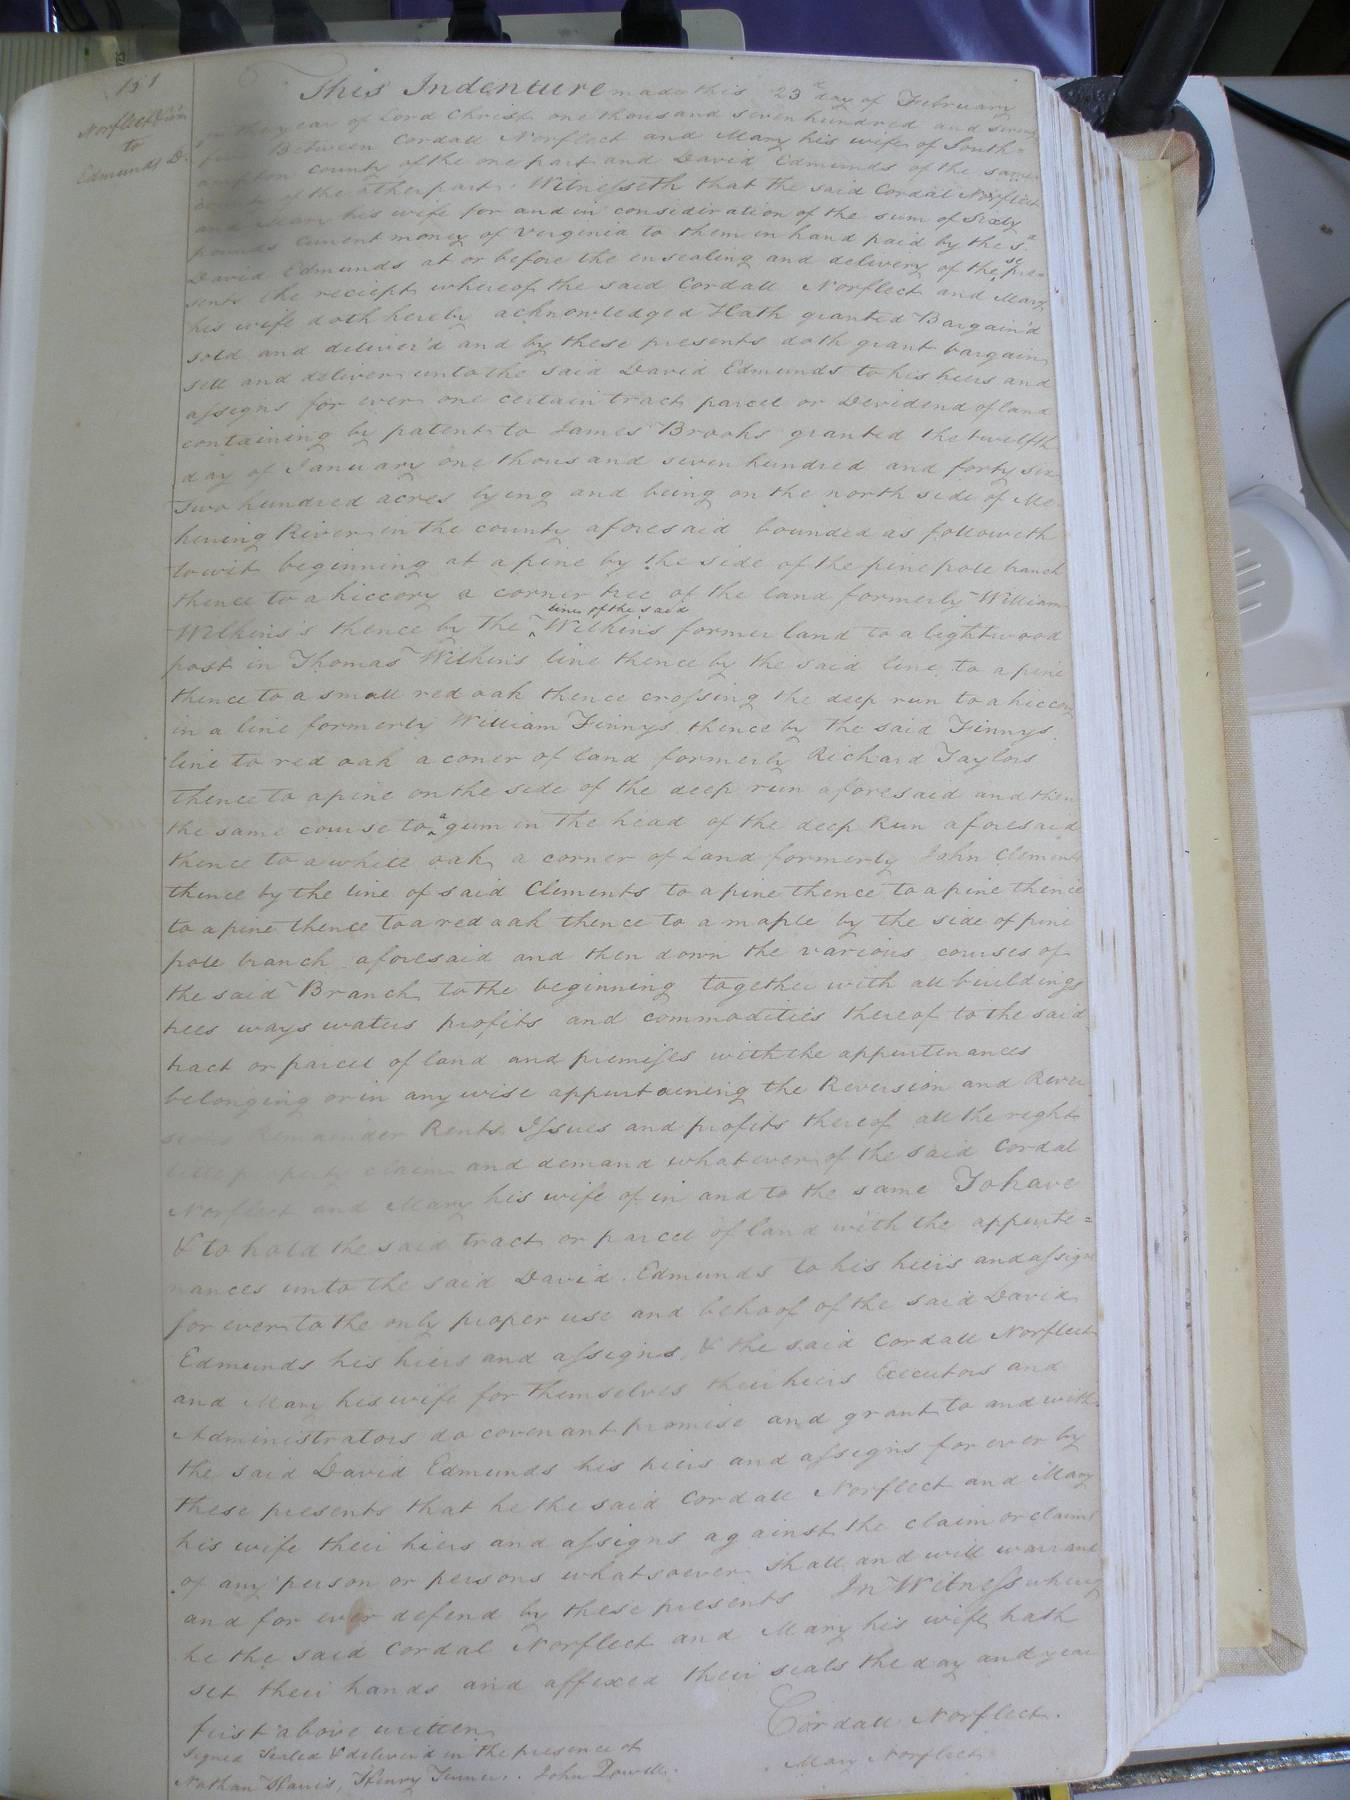 151
Norfleet
to
Edmunds D.
This Indenture made this 23d day of February
in the year of Lord Christ one thousand seven hundred and seventy
Between Cordall Norfleet and Mary his wife of South=
ampton county of the one part and David Edmunds of the same
of the other part. Witnesseth that the said Cordal Norfleet
and Mary his wife for and in consideration of the sum of Sixty
pounds Current money of Virginia to them in hand paid by the sd.
David Edmunds at or before the ensealing and delivery of these pre=
sents the reciept whereof the said Cordall Norfleet and Mary
his wife doth hereby acknowledged Hath granted Bargain'd
sold and deliver'd and by these presents doth grant bargain
sell and deliver unto the said David Edmunds to his heirs and
assigns for ever one certain tract parcel or Devidend of land
containing by patent to James Brooks granted the twelfth
day of January one thousand seven hundred and forty six
Two hundred acres lying and being on the north side of Me
herring River in the county aforesaid bounded as followeth
towit beginning at a pine by the side of the pine pole branch
thence to a hiccory a corner tree of the land formerly William
Wilkins's thence by the line of the said Wilkins former land to a lightwood
post in Thomas Wilkins line thence by the said line to a pine
thence to a small red oak thence crossing the deep run to a hiccory
in a line formerly William Finnys thence by the said Finnys
line to red oak a coner of land formerly Richard Taylors
thence to a pine on the side of the deep run aforesaid and then
the same course to a gum in the head of the deep Run aforesaid
thence to a white oak a corner of Land formerly John Clements
thence by the line of said Clements to a pine thence to a pine thence
to a pine thence to a red oak thence to a maple by the side of pine
pole branch aforesaid and then down the various courses of
the said Branch to the beginning together with all buildings
trees ways waters profits and commodities thereof to the said
tract or parcel of land and premises with the appurtenances
belonging or in any wise appurtaining the Reversion and Rever
sions Remainder Rents Issues and profits thereof all the right
title property claim and demand whatever of the said Cordal
Norfleet and Mary his wife of in and to the same To have
& to hold the said tract or parcel of land with the appurte=
nances unto the said David Edmunds to his heirs and assigns
for ever to the only proper use and behoof of the said David
Edmunds his heirs and assigns & the said Cordall Norfleet
and Mary his wife for themselves their heirs Executors and
Administrators do covenant promise and grant to and with
the said David Edmunds his heirs and assigns for ever by
these presents that he the said Cordall Norfleet and Mary
his wife their heirs and assigns against the claim or claims
of any person or persons whatsoever shall and will warrant
and for ever defend by these presents In Witness whereof
he the said Cordal Norfleet and Mary his wife hath
set their hands and affixed their seals the day and year
first above written
Cordall Norfleet.
Signed Sealed & deliver'd in the presence of
Mary Norfleet
Nathan Harris, Henry Turner. John Powell.